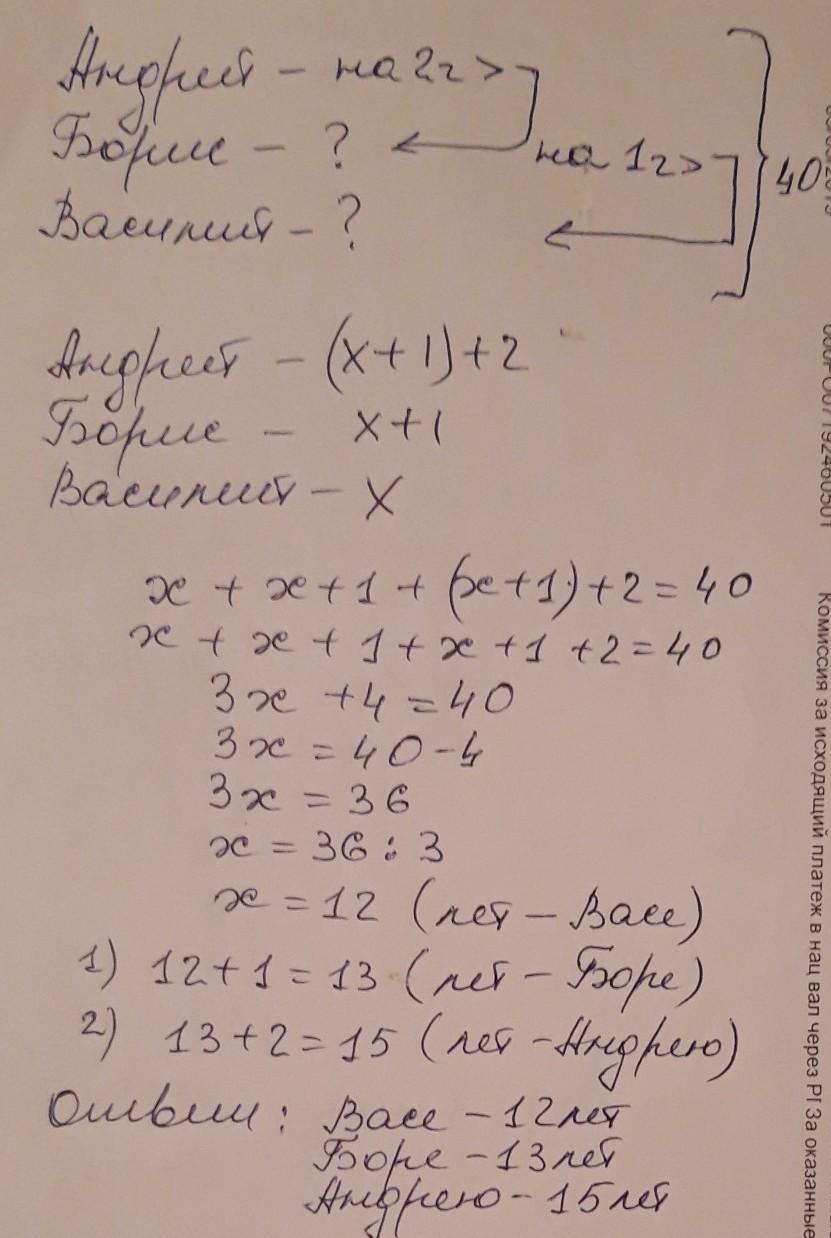 Андрей – на 2г >
Борис – ?
на 1г >
Василий – ?
40
Андрей – (x+1)+2
Борис – x+1
Василий – x
x + x+1 + (x+1)+2=40
x + x + 1 + x +1 +2=40
3x +4 =40
3x = 40-4
3x = 36
x = 36 : 3
x = 12 (лет – Васе)
1) 12+1=13 (лет – Боре)
2) 13+2=15 (лет - Андрею)
Ответ: Васе – 12 лет
Боре – 13 лет
Андрею – 15 лет
Комиссия за исходящий платеж в нац вал через РГ За оказанные